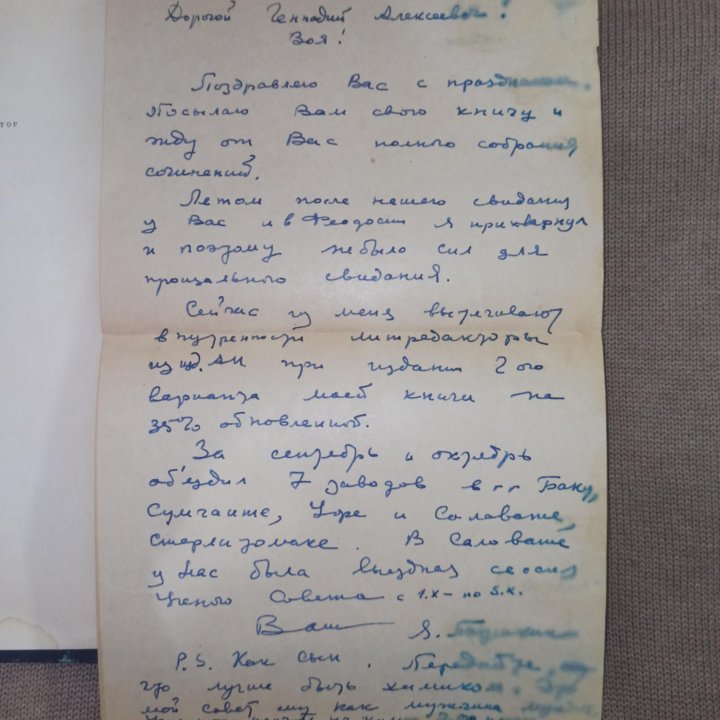 тор
Дорогой Геннадий Алексеевич!
Зоя!
Поздравляю Вас с праздником.
Посылаю Вам свою книгу и
жду от Вас полного собрания
сочинений.
Летом после нашего свидания
у Вас и в Феодосии я прихварнул
и поэтому не было сил для
прощального свидания.
Сейчас из меня вытягивают
внутренности литредакторы
из изд. АН при издании 2ого
варианта моей книги на
35% обновленной.
За сентябрь и октябрь
объездил 7 заводов в гг Баку,
Сумгаите, Уфе и Салавате,
Стерлитамаке. В Салавате
у нас была выездная сессия
Ученого Совета с 1.X – по 5.X.
Ваш Я.
P.S. Как сын. Передайте, ему
что лучше быть химиком. Это
мой совет ему как мужчина